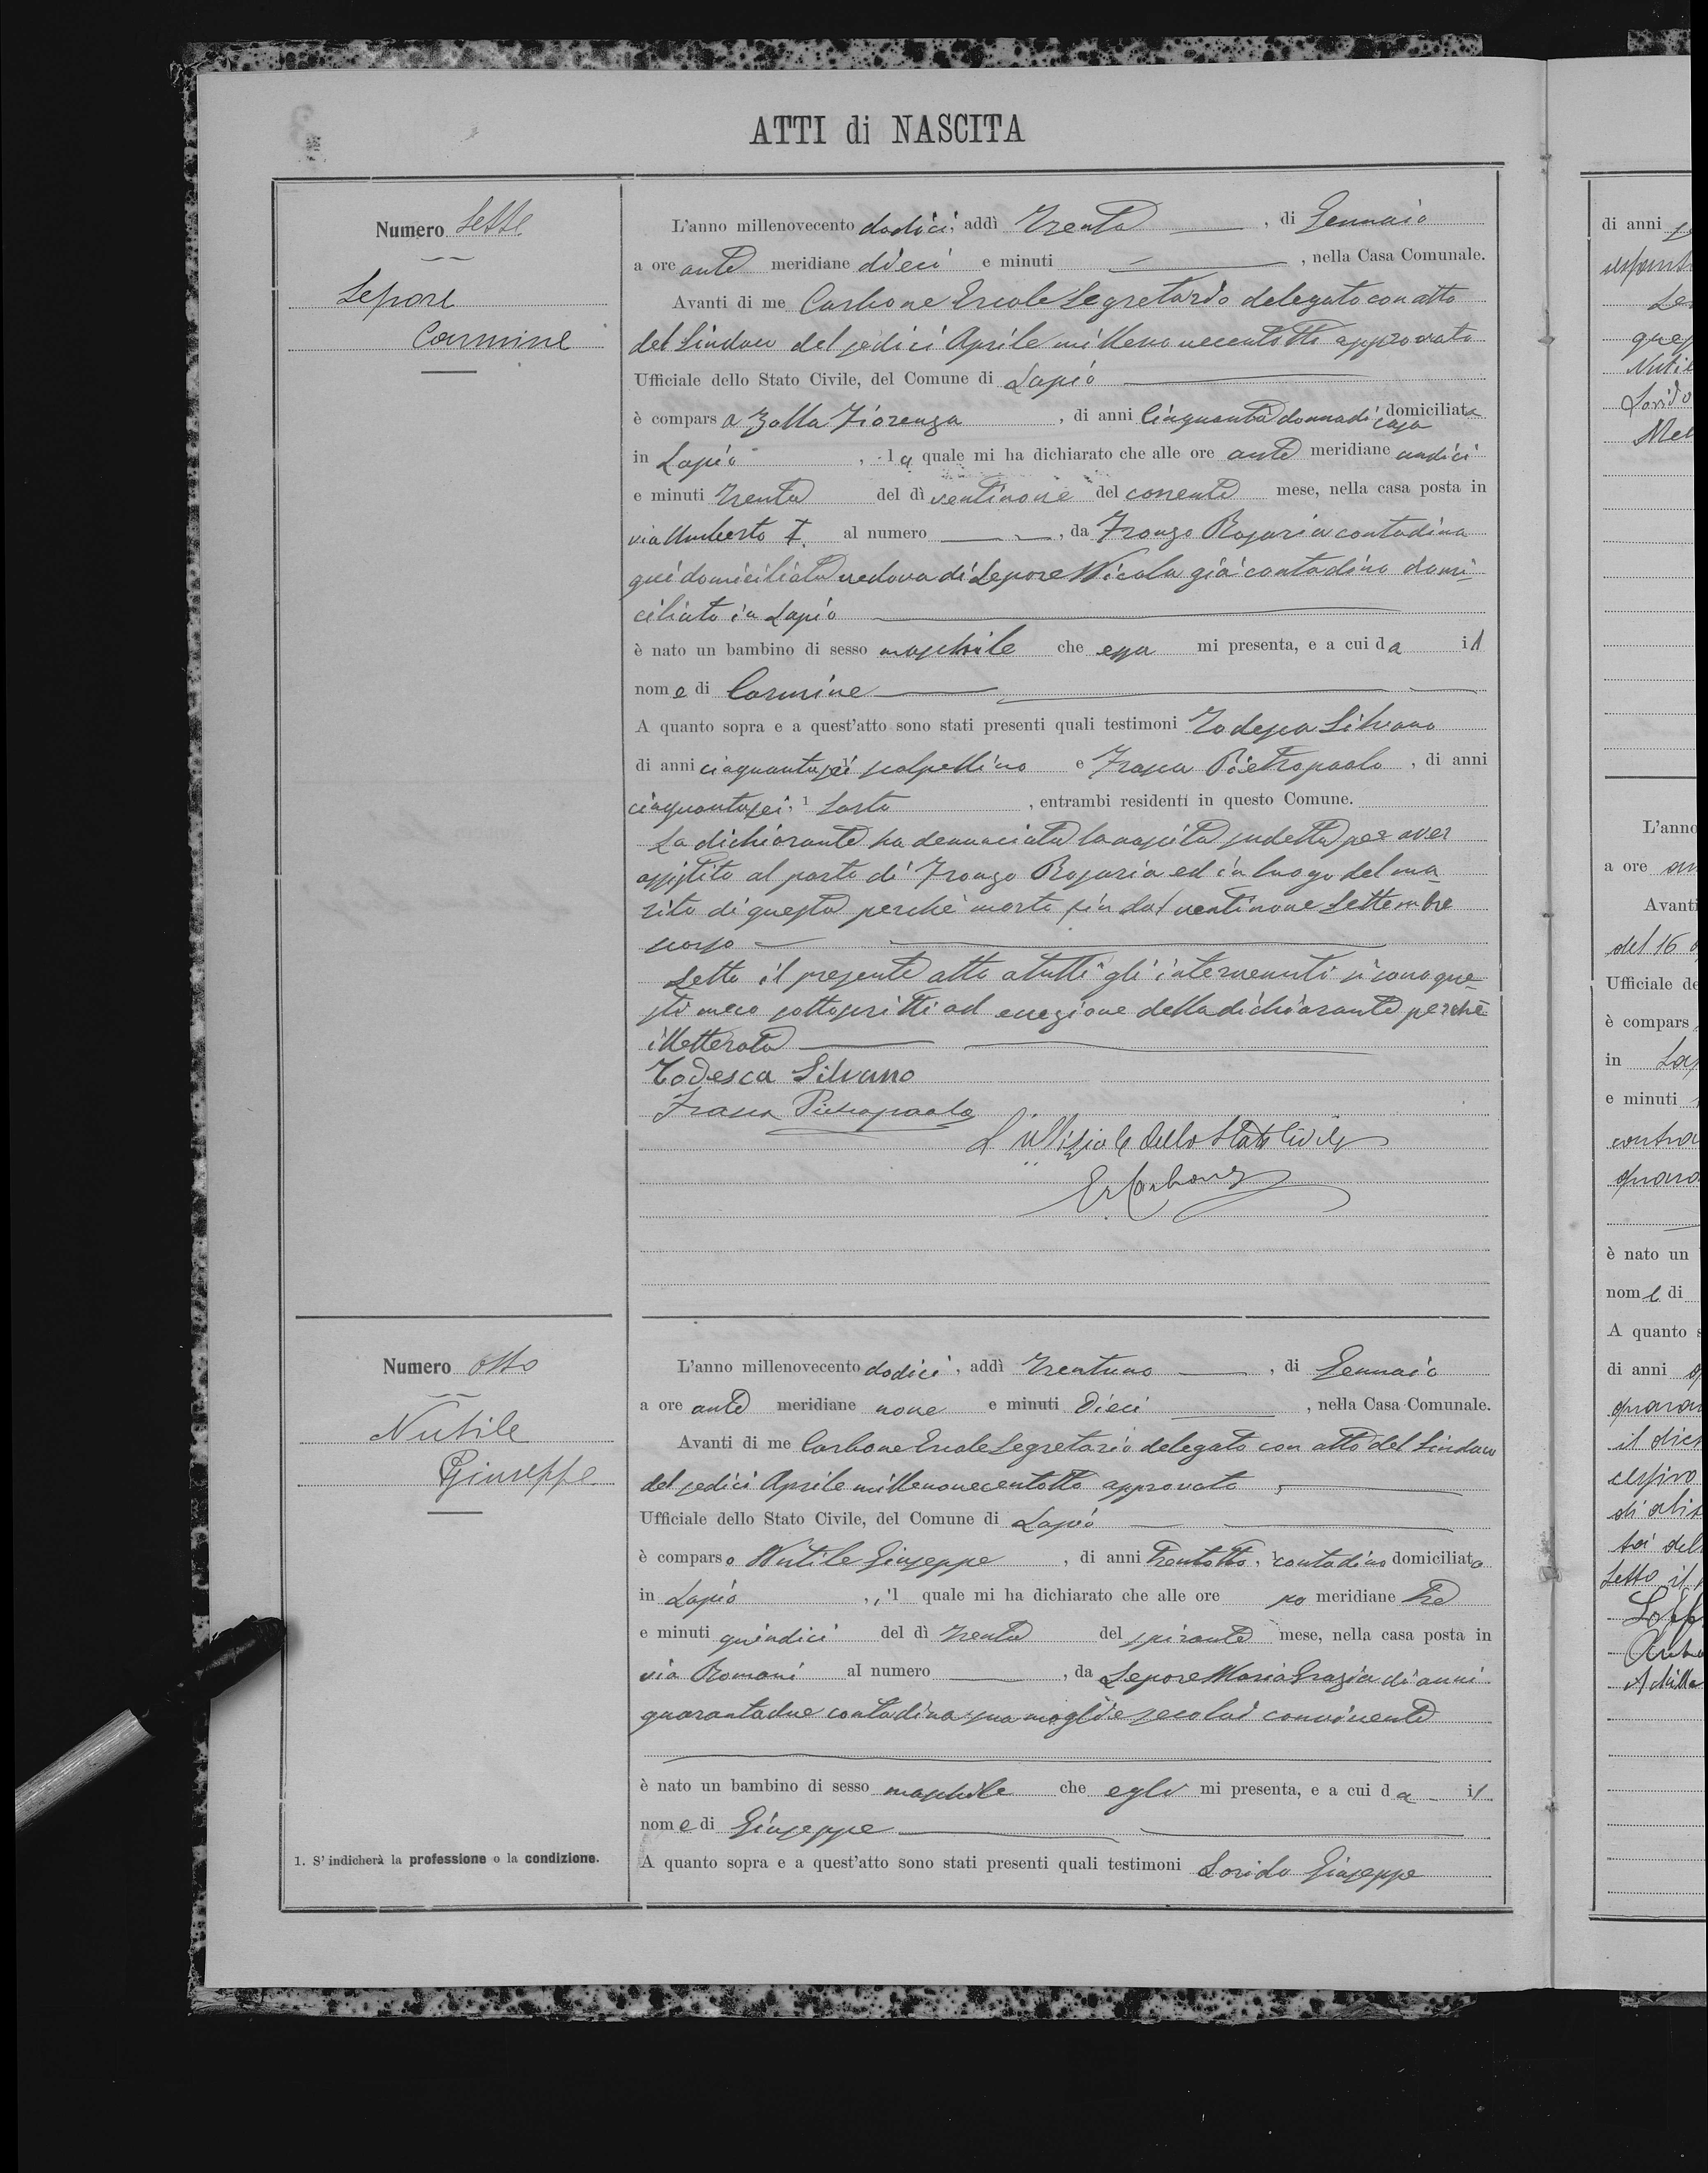 ATTI di NASCITA
Numero Sette
Lepore
Carmine
L'anno millenovecento dodici, addì Trenta, di Gennaio
a ore ante meridiane dieci e minuti, nella Casa Comunale.
Avanti di me Carbone Ercole Segretario delegato con atto
del Sindaco del sedici Aprile millenovecentotto approvato
Ufficiale dello Stato Civile, del Comune di Lapio
è comparsa Zolla Fiorenza, di anni Cinquanta donna di casa domiciliata
in Lapio, la quale mi ha dichiarato che alle ore ante meridiane undici
e minuti trenta del dì ventinove del corrente mese, nella casa posta in
via Umberto I. al numero, da Fronzo Rosaria contadina
qui domiciliata vedova di Lepore Nicola già contadino domi-
ciliato in Lapio
è nato un bambino di sesso maschile che essa mi presenta, e a cui da il
nome di Carmine
A quanto sopra e a quest'atto sono stati presenti quali testimoni Todesca Silvano
di anni cinquantasei scalpellino e Frasca Pietropaolo, di anni
cinquantasei, 1 Sarto, entrambi residenti in questo Comune.
La dichiarante ha denunciata la nascita sudetta per aver
assistito al parto di Fronzo Rosaria ed in luogo del ma-
rito di questa perchè morto sin dal ventinove Settembre
scorso
Letto il presente atto a tutti gli intervenuti si sono que-
sti meco sottoscritti ad eccezione della dichiarante perchè
illetterata
Todesca Silvano
Frasca Pietropaolo
L'uffiziale dello Stato Civile
Er Carbone
Numero otto
Nutile
Giuseppe
L'anno millenovecento dodici, addì Trentuno, di Gennaio
a ore ante meridiane nove e minuti Dieci, nella Casa Comunale.
Avanti di me Carbone Ercole Segretario delegato con atto del Sindaco
del sedici Aprile millenovecentotto approvato
Ufficiale dello Stato Civile, del Comune di Lapio
è comparso Nutile Giuseppe, di anni Trentotto, 1 contadino domiciliato
in Lapio, il quale mi ha dichiarato che alle ore po meridiane tre
e minuti quindici del dì trenta del spirante mese, nella casa posta in
via Romani al numero, da Lepore Maria Grazia di anni
quarantadue contadina sua moglie seco lui convivente
è nato un bambino di sesso maschile che egli mi presenta, e a cui da il
nome di Giuseppe
A quanto sopra e a quest'atto sono stati presenti quali testimoni Lorido Giuseppe
1. S'indicherà la professione o la condizione.
di anni
L'anno
a ore
Avanti
del 16
Ufficiale de
è compars
in Lap
e minuti
è nato un
nome di
A quanto s
di anni